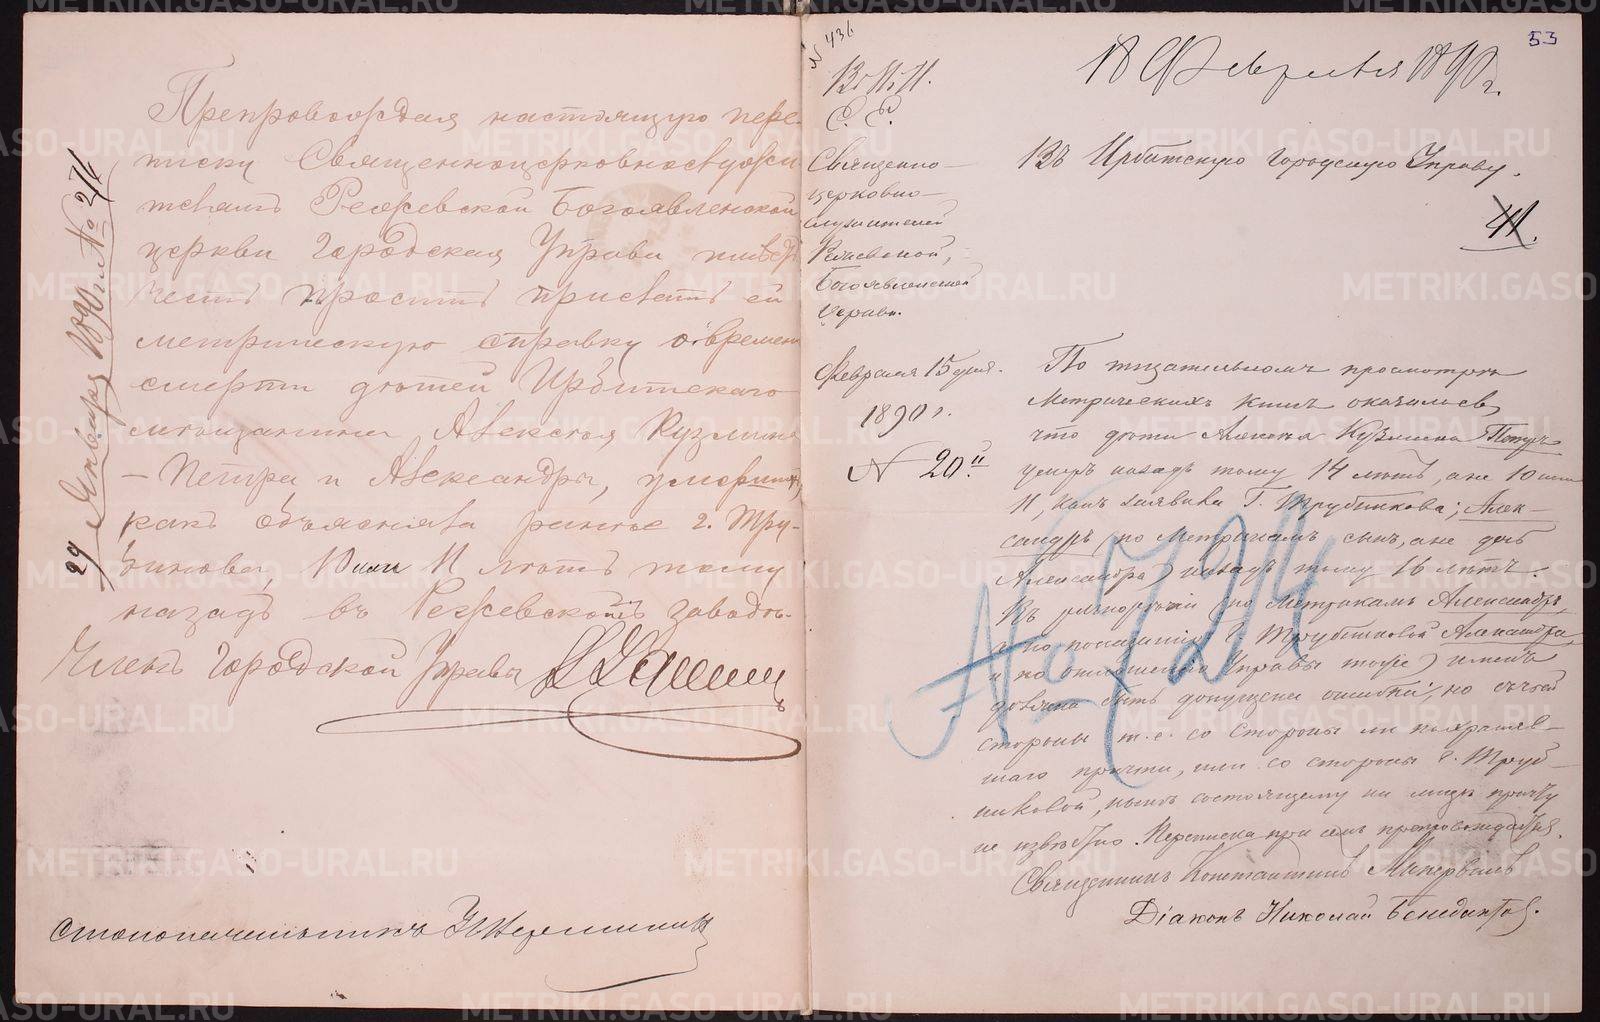 29 Января 1890 г. № 271
Препровождая настоящую пере-
писку Священноцерковнослужи-
телямъ Режевской Богоявленской
церкви Городская Управа имѣетъ
честь просить прислать ей
метрическую справку о времени
смерти дѣтей Ирбитскаго
мѣщанина Алексѣя Кузмина
– Петра и Александры, умершихъ,
какъ объясняла ранѣе г. Тру-
бникова, 10 или 11 лѣтъ тому
назадъ въ Режевскомъ заводѣ.
Членъ Городской Управы
Столоначальникъ
№ 436
53
18 Февраля 1890 г.
В. П. И.
С. Е.
Священно-
церковно-
служителей
Режевской,
Богоявленской
Церкви.
Февраля 15 дня.
1890 г.
№ 20й
Въ Ирбитскую Городскую Управу.
41.
По тщательномъ просмотрѣ
Метрическихъ книгъ оказалось,
что дѣти Алексѣя Кузмина Петръ
умеръ назадъ тому 14 лѣтъ, а не 10 или
11, какъ заявила Г. Трубникова; Алек-
сандръ (по Метрикамъ сынъ, а не дочь
Александра) назадъ тому 16 лѣтъ.
Въ (по Метрикамъ Александръ,
а по показанію Г. Трубниковой Александра,
и по отношенію Управы тоже) именъ
должна быть допущена ошибка; но съ чьей
стороны т. е. со стороны ли
причта, или со стороны г. Труб-
никовой, нынѣ состоящему на лицо причту
не извѣстно. Переписка при семъ препровождается.
Священникъ Константинъ
Діаконъ Николай Бенедиктовъ.
№ 724
METRIKI.GASO-URAL.RU